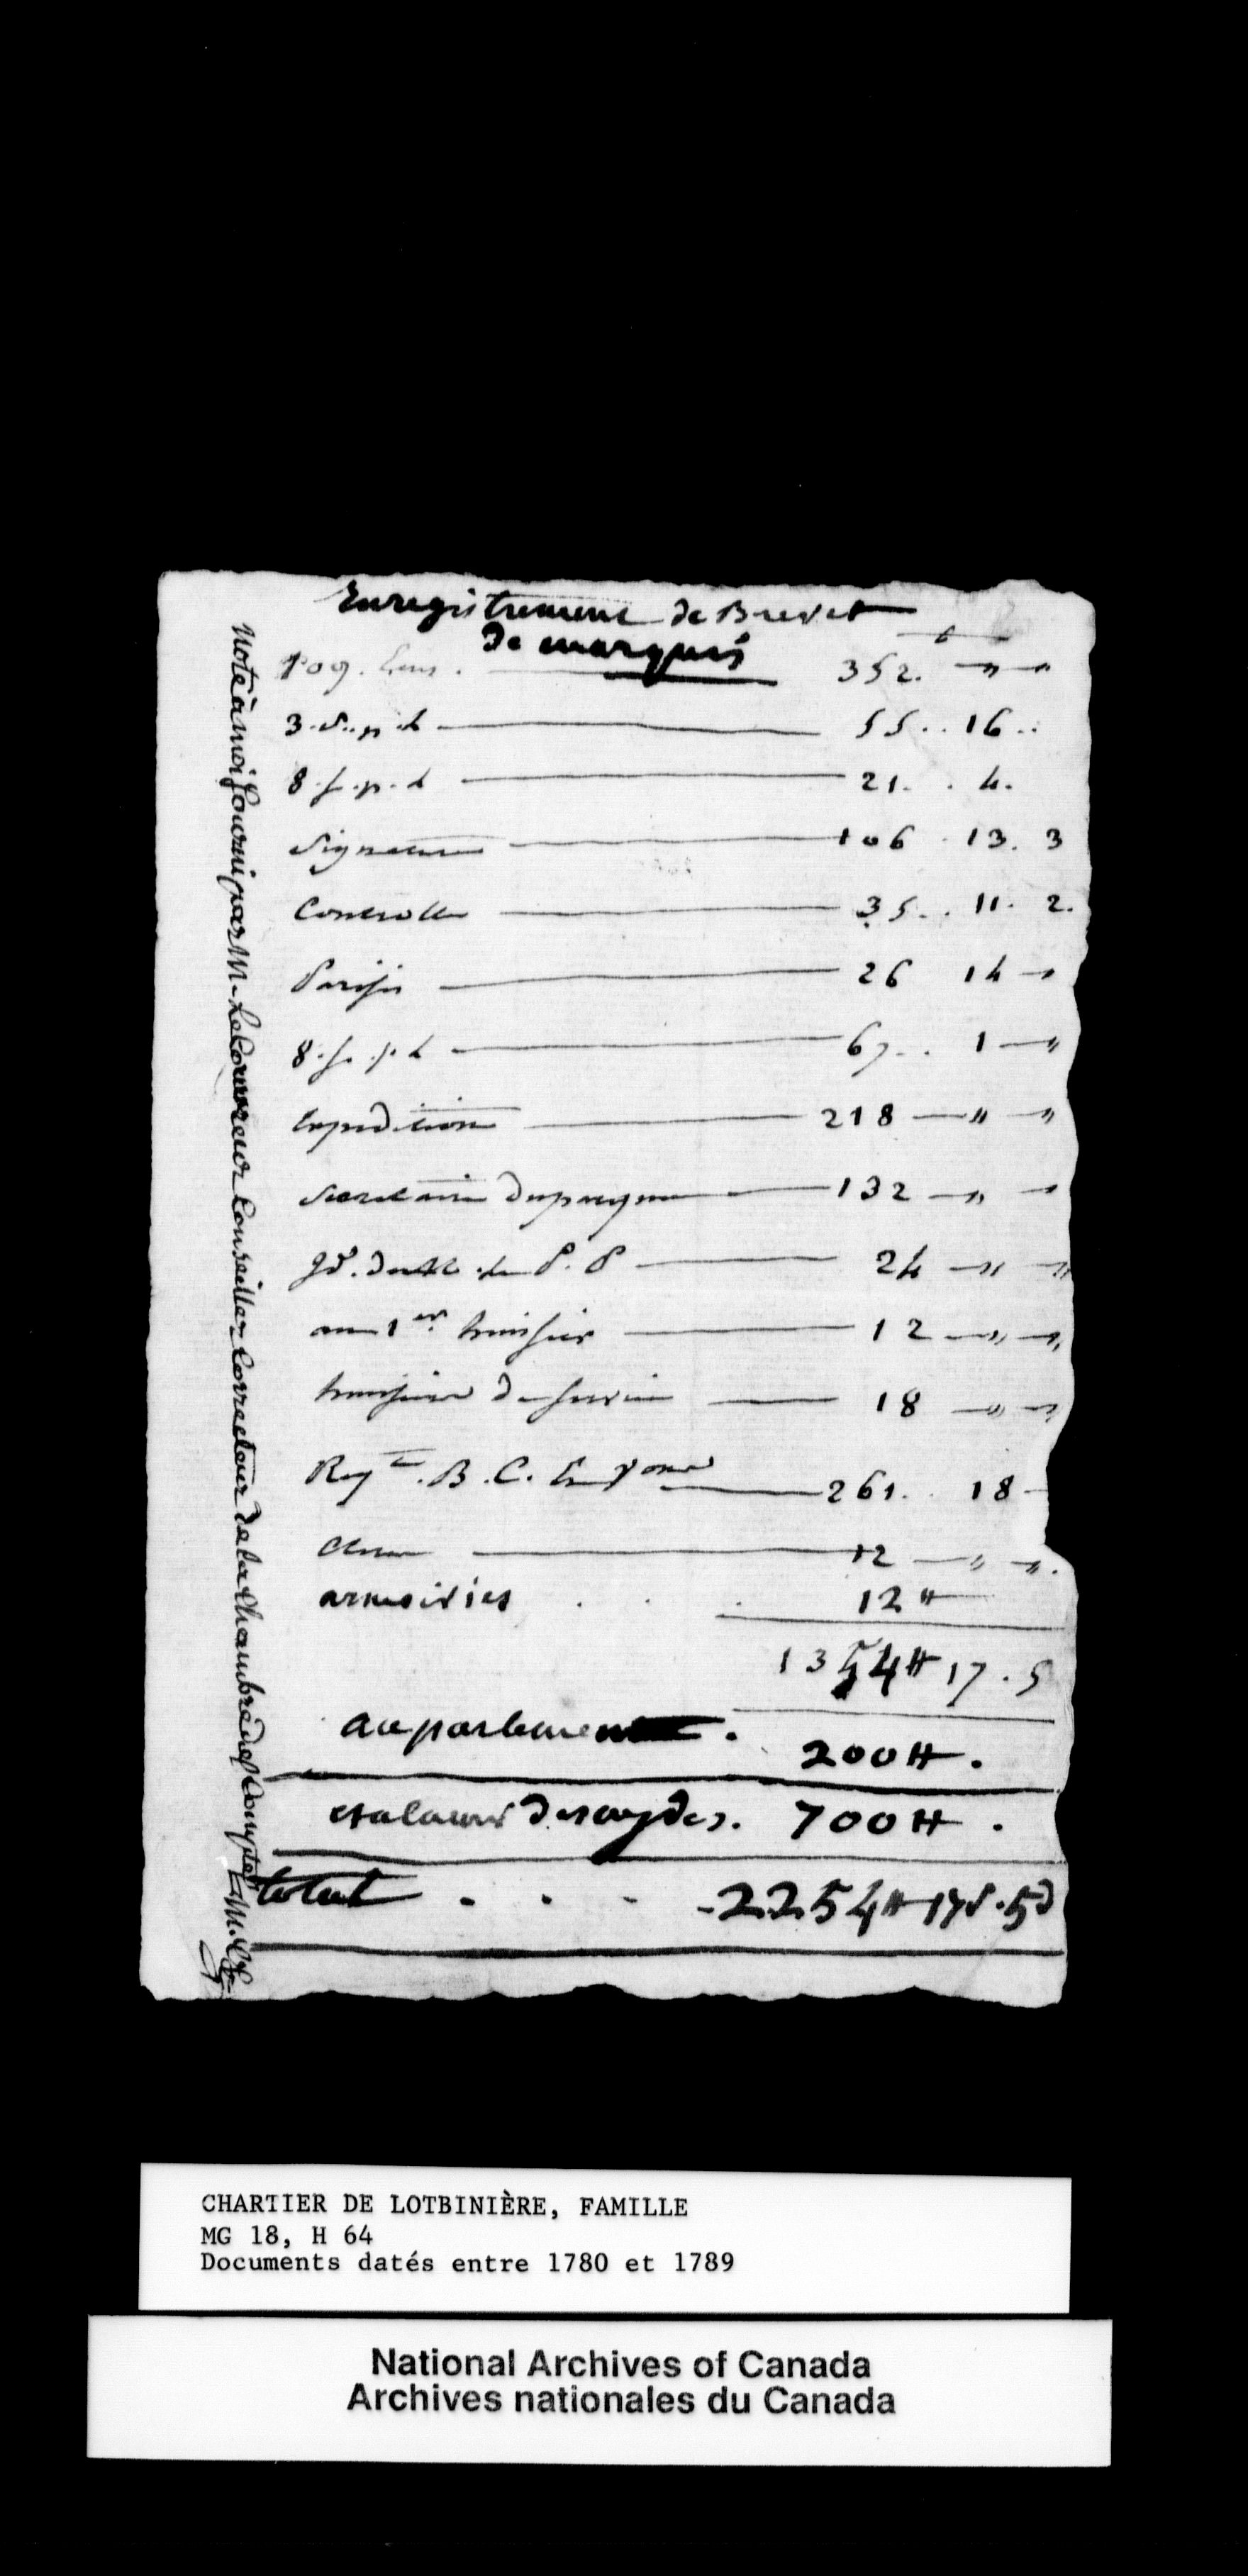 Enregistrement de Brevet
de marquis
352. " "
3. s. p. L 55.. 16..
8. s. p. L 21. . 4.
Signature 106 . 13. 3
Controlle 35. . 11. 2.
Parisis 26 14
8. s. p. L 67. . 1 "
Expedition 218 " "
Secretaire 132 "
P. P 24 " "
au 1er huissier 12 " "
huissier de service 18 " "
B. C. 261. . 18
12 " "
armoiries . . . 12 "
1354 ₶ 17. 5
au parlement . 200 ₶.
et a la cour des aydes. 700 ₶ .
total . . . 2254 ₶ 17 s. 5 d
Note à moi fourni par M. Le Couvreur Conseiller Correcteur de la Chambre des Comptes
CHARTIER DE LOTBINIÈRE, FAMILLE
MG 18, H 64
Documents datés entre 1780 et 1789
National Archives of Canada
Archives nationales du Canada